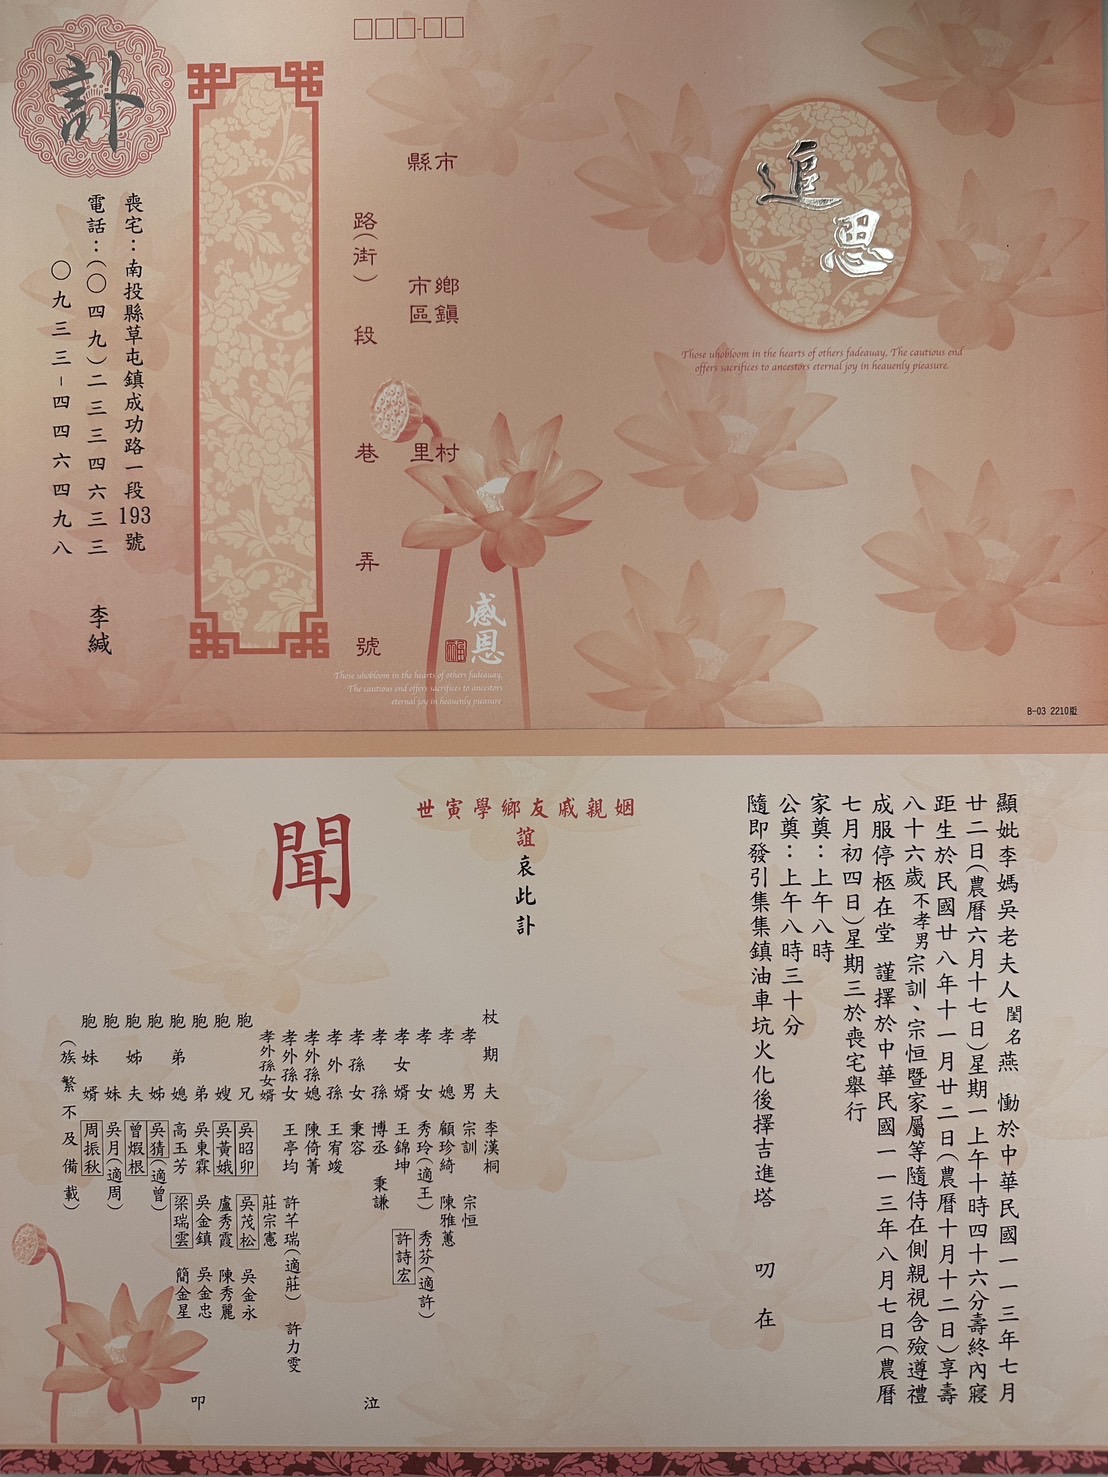 訃
喪宅：南投縣草屯鎮成功路一段193號
電話：(〇四九)二三三四六三三
〇九三三-四四六四九八
李緘
縣市
鄉鎮
市區
村里
路(街)
段
巷
弄
號
感恩
Those whobloom in the hearts of others fadeauay,
The cautious end offers sacrifices to ancestors
eternal joy in heavenly pleasure
追思
Those whobloom in the hearts of others fadeauay, The cautious end
offers sacrifices to ancestors eternal joy in heavenly pleasure.
B-03 2210
顯妣李媽吳老夫人閨名燕 慟於中華民國一一三年七月
廿二日(農曆六月十七日)星期一上午十時四十六分壽終內寢
距生於民國廿八年十一月廿二日(農曆十月十二日)享壽
八十六歲不孝男宗訓、宗恒暨家屬等隨侍在側親視含殮遵禮
成服停柩在堂 謹擇於中華民國一一三年八月七日(農曆
七月初四日)星期三於喪宅舉行
家奠：上午八時
公奠：上午八時三十分
隨即發引集集鎮油車坑火化後擇吉進塔 叨 在
姻親戚友鄉學寅世
誼哀此訃
聞
杖期夫 李漢桐
孝男 宗訓 宗恒
孝媳 顧珍綺 陳雅蕙
孝女 秀玲(適王) 秀芬(適許)
孝女婿 王錦坤 許詩宏
孝孫 博丞 秉謙
孝孫女 秉容
孝外孫 王宥竣
孝外孫媳 陳倚菁
孝外孫女 王亭均 許芊瑞(適莊) 許力雯
孝外孫女婿 莊宗憲
胞兄 吳昭卯 吳茂松 吳金永
胞嫂 吳黃娥 盧秀霞 陳秀麗
胞弟 吳東霖 吳金鎮 吳金忠
胞弟媳 高玉芳 梁瑞雲 簡金星
胞姊 吳猜(適曾)
胞姊夫 曾煅根
胞妹 吳月(適周)
胞妹婿 周振秋
(族繁不及備載)
泣
叩